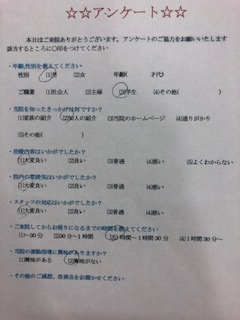 ☆☆アンケート☆☆
本日はご来院ありがとうございます。アンケートのご協力をお願いいたします
該当するところに○印をつけてください
・年齢,性別を教えてください
性別 (1)男 (2)女 年齢( 才代)
ご職業 (1)社会人 (2)主婦 (3)学生 (4)その他( )
・当院を知ったきっかけは何ですか?
(1)家族の紹介 (2)知人の紹介 (3)当院のホームページ (4)通りがかり
(5)その他( )
・治療内容はいかがでしたか?
(1)大変良い (2)良い (3)普通 (4)悪い (5)よくわからない
・院内の雰囲気はいかがでしたか?
(1)大変良い (2)良い (3)普通 (4)悪い
・スタッフの対応はいかがでしたか?
(1)大変良い (2)良い (3)普通 (4)悪い
・ご来院してからお帰りになるまでの時間を教えてください
(1)~30分 (2)30分~1時間 (3)1時間~1時間30分 (4)1時間30分~
・当院の運動指導に興味がありますか?
(1)興味がある (2)興味がない
・その他のご感想、改善点をお聞かせください